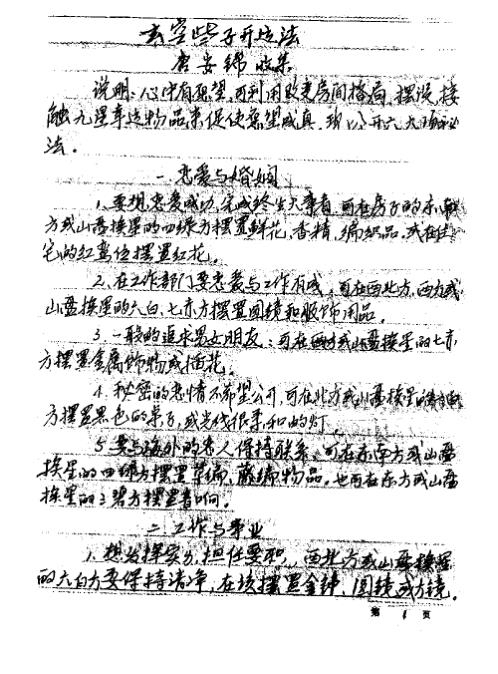 玄空紫子开运法
唐安锦 收集
说明:心中有愿望,可利用改变房间格局,摆设,接
触九星幸运物品来促使愿望成真,现公开六大项秘
法。
一 恋爱与婚姻
1、要想恋爱成功,完成终生大事者,可在房子的东南
方或山盘挨星的四绿方摆置鲜花、香精、编织品,或在住
宅的红鸾位摆置红花。
2、在工作部门要恋爱与工作有成,可在西北方,西方或
山盘挨星的六白、七赤方摆置圆镜和服饰用品。
3、一般的追求男女朋友:可在西方或山盘挨星的七赤
方摆置金属饰物或插花。
4、秘密的恋情不希望公开,可在北方或山盘挨星
方摆置黑色的桌子,或光线很柔和的灯
5、要与海外的恋人保持联系,可在东南方或山盘
挨星的四绿方摆置草编、藤编物品。也可在东方或山盘
挨星的三碧方摆置音响。
二 工作与事业
1、想发挥实力,担任要职,西北方或山盘挨星
的六白方要保持清净,在该摆置金钟、圆镜或方镜。
第 1 页